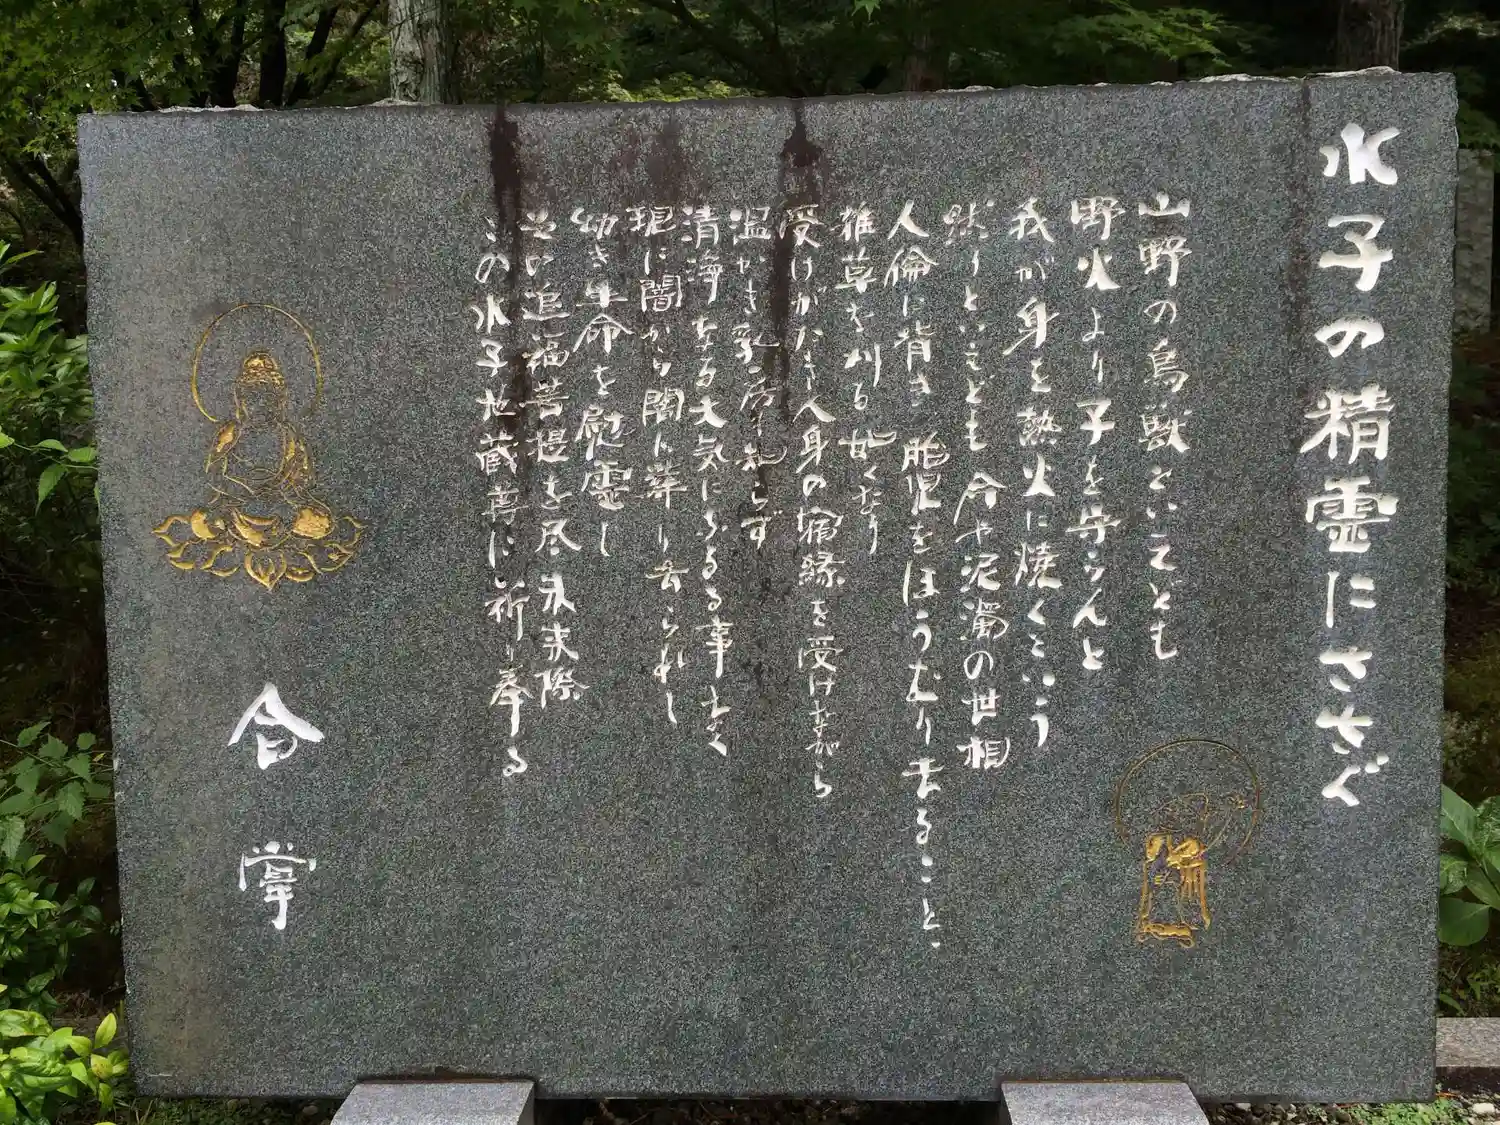 水子の精霊にささぐ
山野の鳥獣といえども
野火より子を守らんと
我が身を熱火に焼くという
然りといえども 今や泥濁の世相
人倫に背き 胎児をほうむり去ること、
雑草を刈る如くなり
受けがたき人身の宿縁を受けながら
温かき乳房も知らず
清浄なる大気にふるる事もなく
現に闇から闇に葬り去られし
幼き生命を慰霊し
其の追福菩提を尽未来際
この水子地蔵尊に祈り奉る
合掌